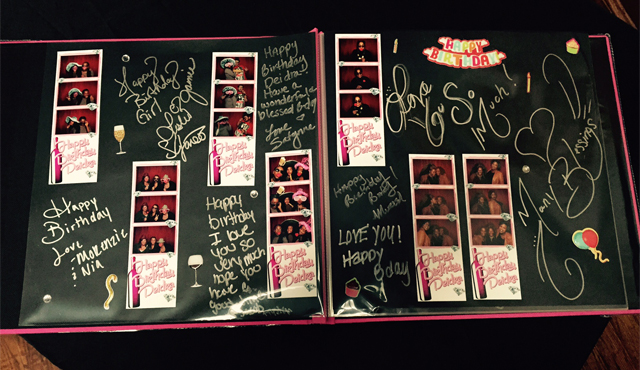 Happy
Birthday
Girl
Love
James
Happy
Birthday
Deidra!
Have a
wonderful &
blessed Bday
Love
Suzanne
Happy
Birthday
Deidra
Happy
Birthday
Deidra
Happy
Birthday
Love
-McKenzie
& Nia
Happy
Birthday
Deidra
Happy
birthday
I love
you so
very much
hope you
have a
good
Happy
Birthday
Deidra
HAPPY
BIRTHDAY
Love
You So
Much!
Happy
Birthday
Deidra
Happy
Birthday
LOVE YOU!
Happy
Bday
Happy
Birthday
Deidra
Happy
Birthday
Deidra
Many
Blessings
D